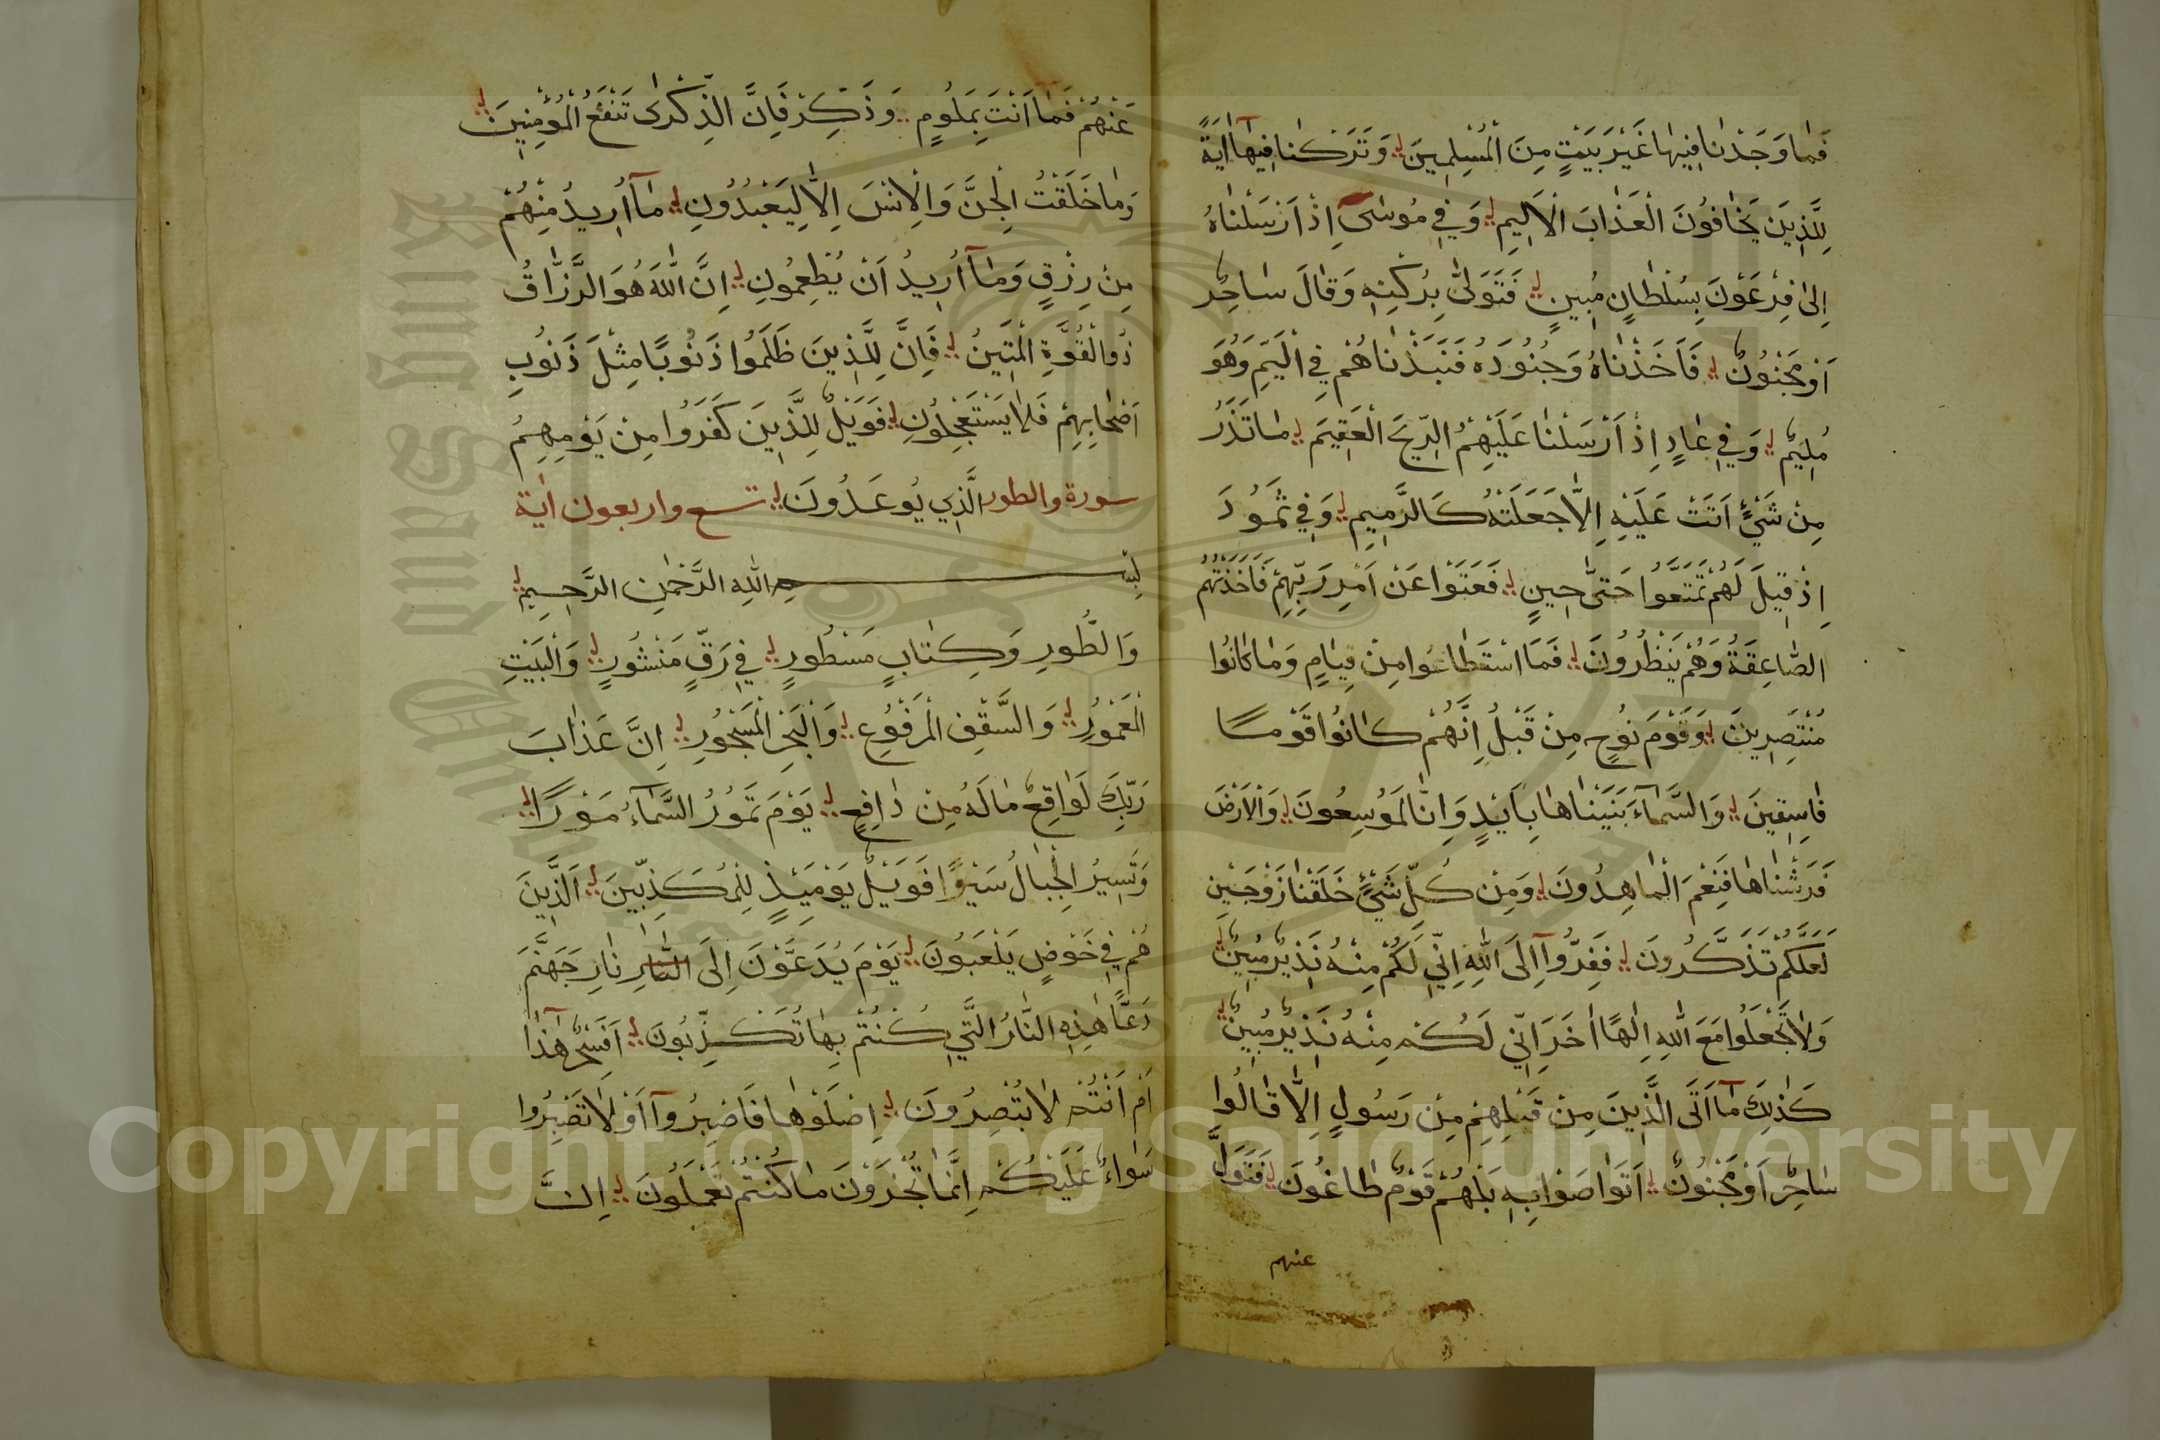 فَمَا وَجَدْنَا فِيهَا غَيْرَ بَيْتٍ مِنَ الْمُسْلِمِينَ وَتَرَكْنَا فِيهَآ اٰيَةً
لِلَّذِينَ يَخَافُونَ الْعَذَابَ الْاَلِيمِ وَفِي مُوسٰىٓ اِذْ اَرْسَلْنَاهُ
اِلٰى فِرْعَوْنَ بِسُلْطَانٍ مُبِينٍ فَتَوَلّٰى بِرُكْنِهِ وَقَالَ سَاحِرٌ
اَوْ مَجْنُونٌ فَاَخَذْنَاهُ وَجُنُودَهُ فَنَبَذْنَاهُمْ فِي الْيَمِّ وَهُوَ
مُلِيمٌ وَفِي عَادٍ اِذْ اَرْسَلْنَا عَلَيْهِمُ الرِّيحَ الْعَقِيمَ مَا تَذَرُ
مِنْ شَيْءٍ اَتَتْ عَلَيْهِ اِلَّا جَعَلَتْهُ كَالرَّمِيمِ وَفِي ثَمُودَ
اِذْ قِيلَ لَهُمْ تَمَتَّعُوا حَتّٰى حِينٍ فَعَتَوْا عَنْ اَمْرِ رَبِّهِمْ فَاَخَذَتْهُمُ
الصَّاعِقَةُ وَهُمْ يَنْظُرُونَ فَمَا اسْتَطَاعُوا مِنْ قِيَامٍ وَمَا كَانُوا
مُنْتَصِرِينَ وَقَوْمَ نُوحٍ مِنْ قَبْلُ اِنَّهُمْ كَانُوا قَوْمًا
فَاسِقِينَ وَالسَّمَآءَ بَنَيْنَاهَا بِاَيْدٍ وَاِنَّا لَمُوسِعُونَ وَالْاَرْضَ
فَرَشْنَاهَا فَنِعْمَ الْمَاهِدُونَ وَمِنْ كُلِّ شَيْءٍ خَلَقْنَا زَوْجَيْنِ
لَعَلَّكُمْ تَذَكَّرُونَ فَفِرُّوآ اِلَى اللّٰهِ اِنِّي لَكُمْ مِنْهُ نَذِيرٌ مُبِينٌ
وَلَا تَجْعَلُوا مَعَ اللّٰهِ اِلٰهًا اٰخَرَ اِنِّي لَكُمْ مِنْهُ نَذِيرٌ مُبِينٌ
كَذٰلِكَ مَآ اَتَى الَّذِينَ مِنْ قَبْلِهِمْ مِنْ رَسُولٍ اِلَّا قَالُوا
سَاحِرٌ اَوْ مَجْنُونٌ اَتَوَاصَوْا بِهِ بَلْ هُمْ قَوْمٌ طَاغُونَ فَتَوَلَّ
عنهم
عَنْهُمْ فَمَا اَنْتَ بِمَلُومٍ وَذَكِّرْ فَاِنَّ الذِّكْرٰى تَنْفَعُ الْمُؤْمِنِينَ
وَمَا خَلَقْتُ الْجِنَّ وَالْاِنْسَ اِلَّا لِيَعْبُدُونِ مَآ اُرِيدُ مِنْهُمْ
مِنْ رِزْقٍ وَمَآ اُرِيدُ اَنْ يُطْعِمُونِ اِنَّ اللّٰهَ هُوَ الرَّزَّاقُ
ذُو الْقُوَّةِ الْمَتِينُ فَاِنَّ لِلَّذِينَ ظَلَمُوا ذَنُوبًا مِثْلَ ذَنُوبِ
اَصْحَابِهِمْ فَلَا يَسْتَعْجِلُونِ فَوَيْلٌ لِلَّذِينَ كَفَرُوا مِنْ يَوْمِهِمُ
سورة والطور الَّذِي يُوعَدُونَ تسع واربعون اية
بِسْمِ اللّٰهِ الرَّحْمٰنِ الرَّحِيمِ
وَالطُّورِ وَكِتَابٍ مَسْطُورٍ فِي رَقٍّ مَنْشُورٍ وَالْبَيْتِ
الْمَعْمُورِ وَالسَّقْفِ الْمَرْفُوعِ وَالْبَحْرِ الْمَسْجُورِ اِنَّ عَذَابَ
رَبِّكَ لَوَاقِعٌ مَا لَهُ مِنْ دَافِعٍ يَوْمَ تَمُورُ السَّمَآءُ مَوْرًا
وَتَسِيرُ الْجِبَالُ سَيْرًا فَوَيْلٌ يَوْمَئِذٍ لِلْمُكَذِّبِينَ اَلَّذِينَ
هُمْ فِي خَوْضٍ يَلْعَبُونَ يَوْمَ يُدَعُّونَ اِلَى النَّارِ نَارِ جَهَنَّمَ
دَعًّا هٰذِهِ النَّارُ الَّتِي كُنْتُمْ بِهَا تُكَذِّبُونَ اَفَسِحْرٌ هٰذَآ
اَمْ اَنْتُمْ لَا تُبْصِرُونَ اِصْلَوْهَا فَاصْبِرُوآ اَوْ لَا تَصْبِرُوا
سَوَاءٌ عَلَيْكُمْ اِنَّمَا تُجْزَوْنَ مَا كُنْتُمْ تَعْمَلُونَ اِنَّ
Copyright © King Saud University
King Saud University